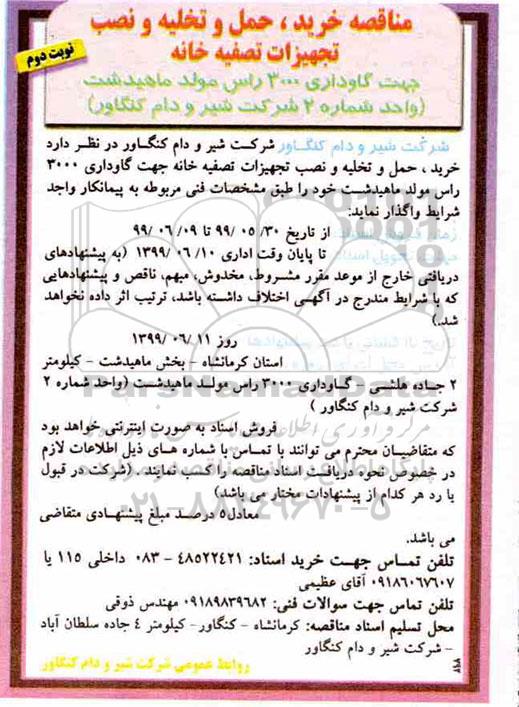 مناقصه خرید ، حمل و تخلیه و نصب
تجهیزات تصفیه خانه
نوبت دوم
جهت گاوداری ۳۰۰۰ راس مولد ماهیدشت
(واحد شماره ۲ شرکت شیر و دام کنگاور)
شرکت شیر و دام کنگاور شرکت شیر و دام کنگاور در نظر دارد
خرید ، حمل و تخلیه و نصب تجهیزات تصفیه خانه جهت گاوداری ۳۰۰۰
راس مولد ماهیدشت خود را طبق مشخصات فنی مربوطه به پیمانکار واجد
شرایط واگذار نماید:
از تاریخ ۹۹/۰۵/۳۰ تا ۹۹/۰۶/۰۹
تا پایان وقت اداری ۱۳۹۹/۰۶/۱۰ (به پیشنهادهای
دریافتی خارج از موعد مقرر مشروط، مخدوش، مبهم، ناقص و پیشنهادهایی
که با شرایط مندرج در آگهی اختلاف داشته باشد، ترتیب اثر داده نخواهد
شد.)
روز ۱۳۹۹/۰۶/۱۱
استان کرمانشاه - بخش ماهیدشت - کیلومتر
۲ جاده هلشی - گاوداری ۳۰۰۰ راس مولد ماهیدشت (واحد شماره ۲
شرکت شیر و دام کنگاور )
فروش اسناد به صورت اینترنتی خواهد بود
که متقاضیان محترم می توانند با تماس با شماره های ذیل اطلاعات لازم
در خصوص نحوه دریافت اسناد مناقصه را کسب نمایند. (شرکت در قبول
یا رد هر کدام از پیشنهادات مختار می باشد)
معادل۵ درصد مبلغ پیشنهادی متقاضی
می باشد.
تلفن تماس جهت خرید اسناد: ۴۸۵۲۲۴۲۱ - ۰۸۳ داخلی ۱۱۵ یا
۰۹۱۸۶۰۶۷۶۰۷ آقای عظیمی
تلفن تماس جهت سوالات فنی: ۰۹۱۸۹۸۳۹۶۸۲ مهندس ذوقی
محل تسلیم اسناد مناقصه: کرمانشاه - کنگاور- کیلومتر ٤ جاده سلطان آباد
- شرکت شیر و دام کنگاور
روابط عمومی شرکت شیر و دام کنگاور
ParsNamadData
۰۲۱-۸۸۳۴۹۶۷۰-۵